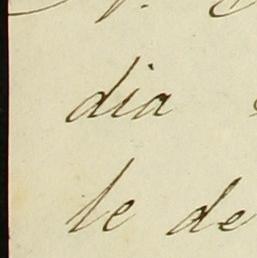 dia
te de